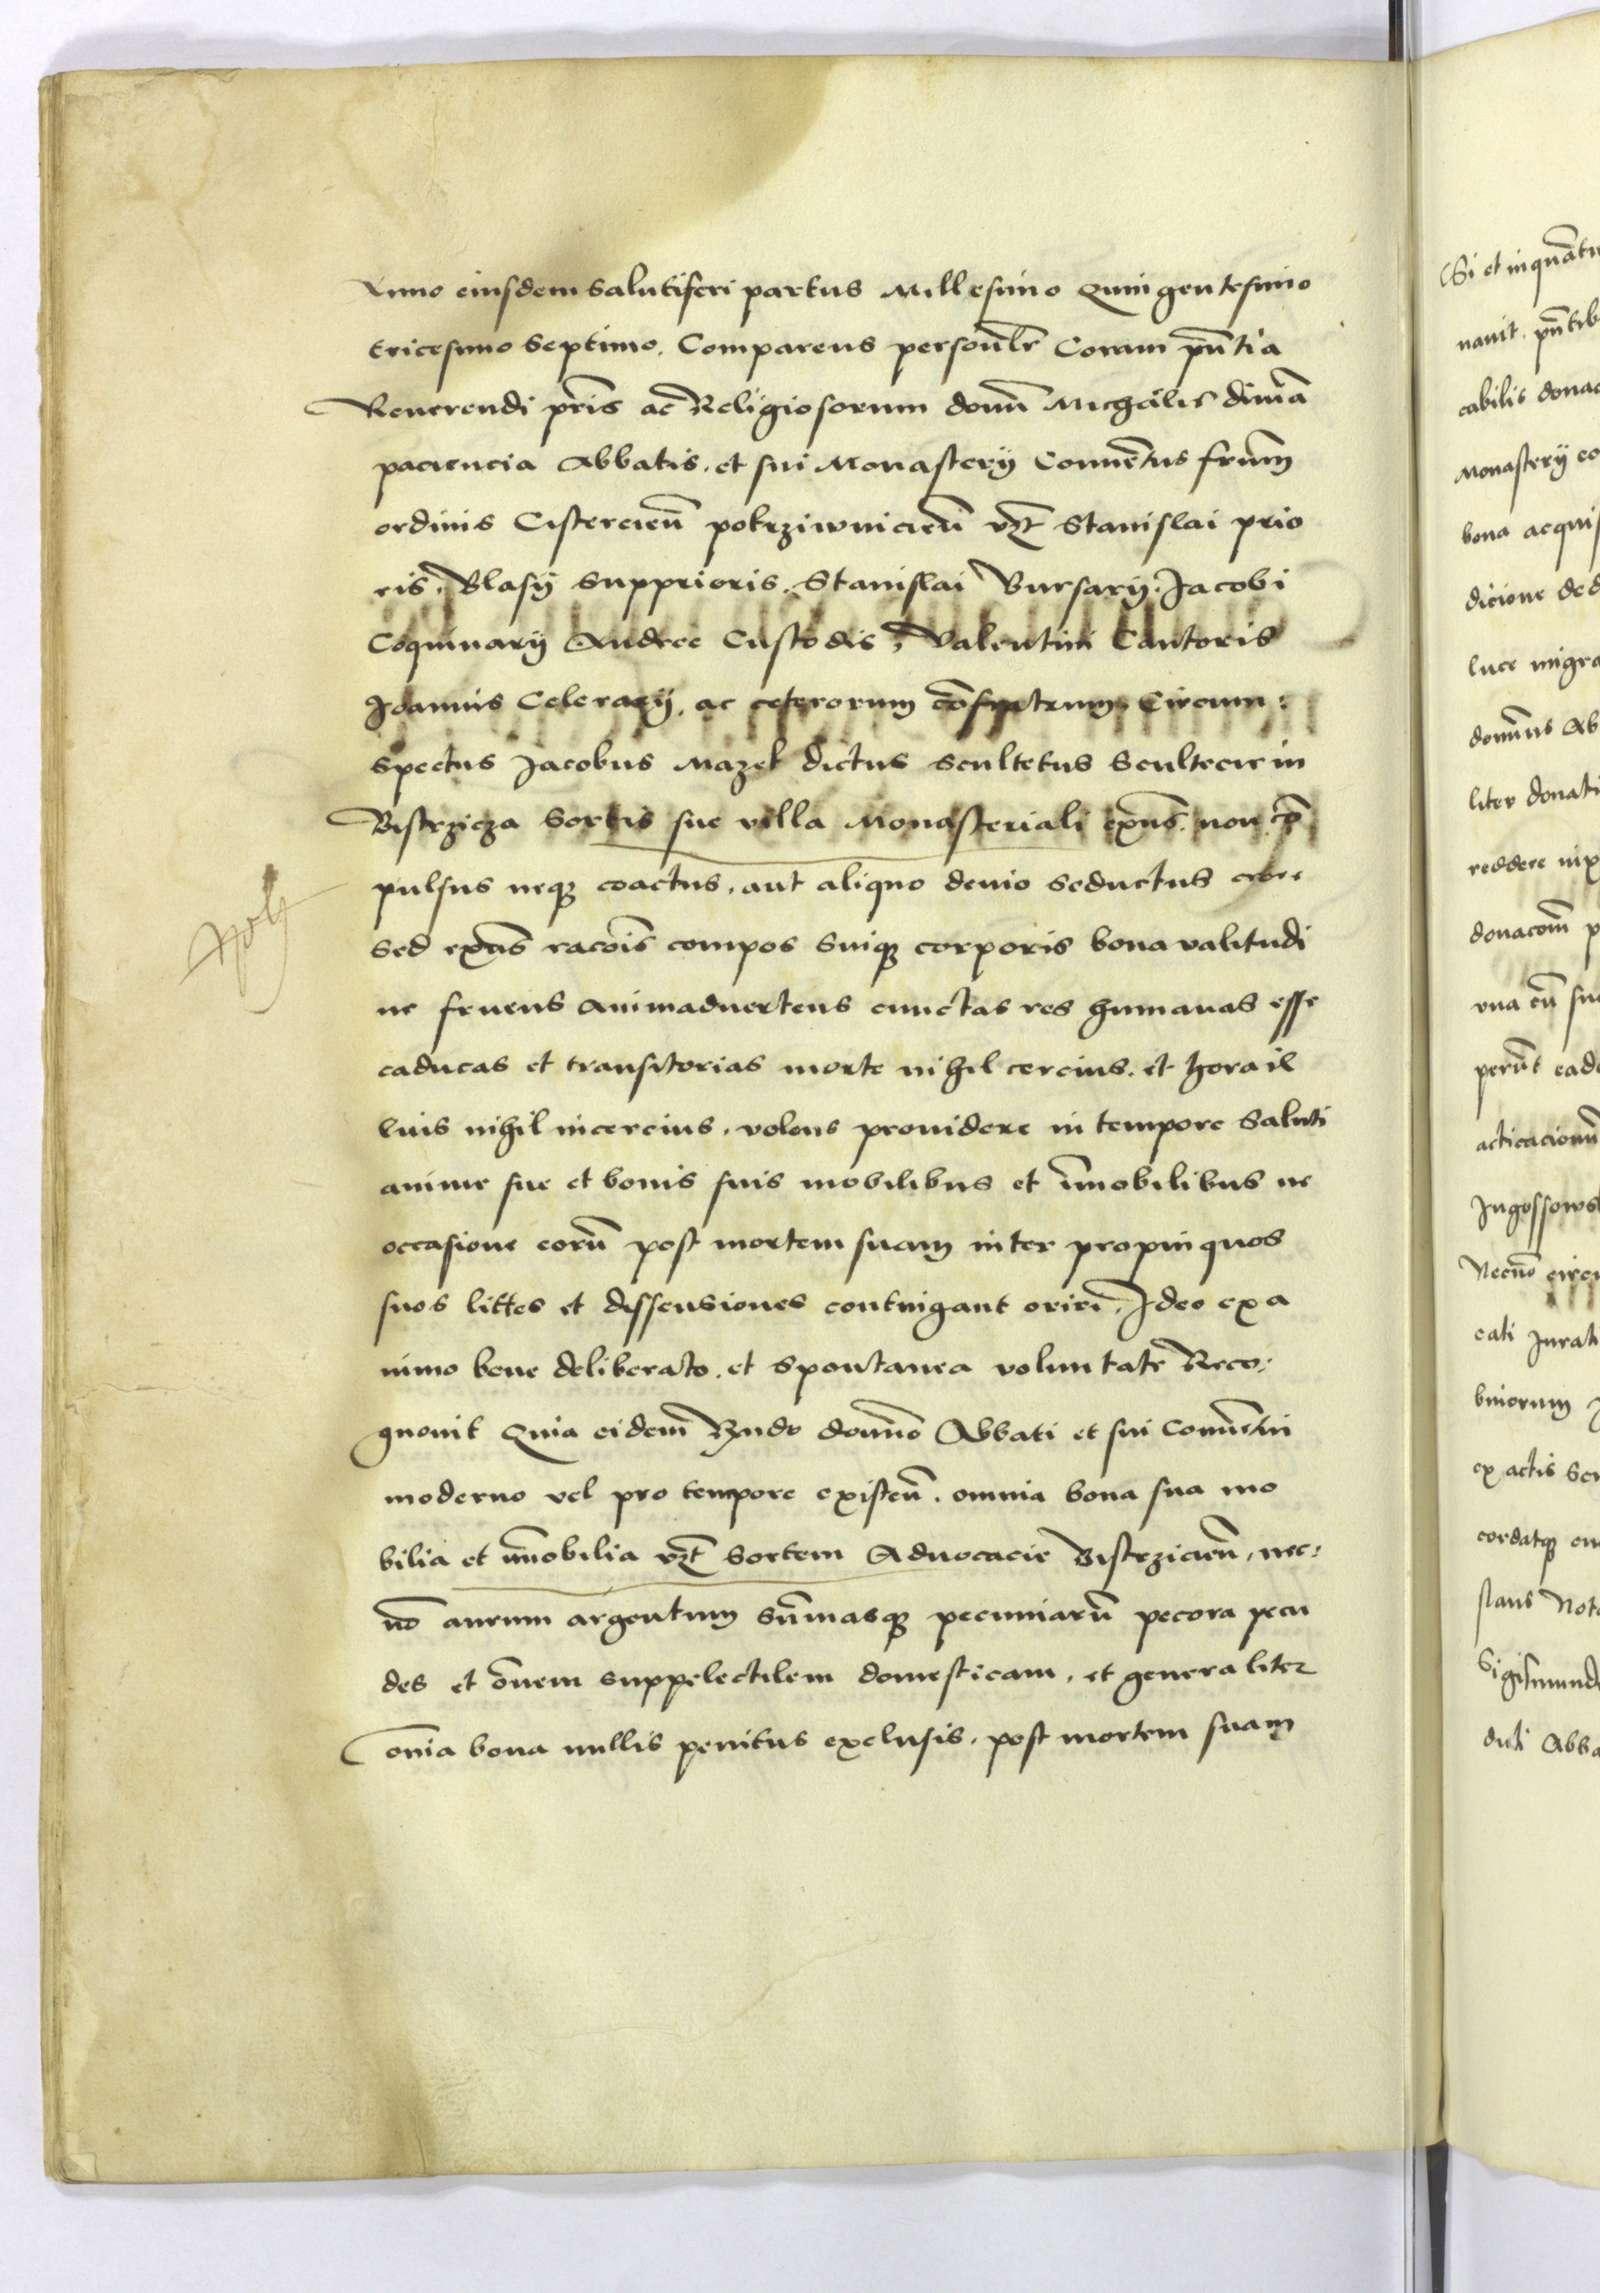 Anno eiusdem Salutiferi partus Millesimo Quingentesimo
tricesimo Septimo. Comparens personl̄r Coram pn̄tia
Reverendi pr̄is ac Religiosorum domn̄ Michaelis divīa
paciencia Abbatis. et sui Monasterij Conuēntus frūm
ordinis Cistercieñ pokrziwnicieñ vzt Stanislai prio
ris. Blasij Supprioris. Stanislai Bursarij. Jacobi
Coquinarij Andree Custodis, Valentini Cantoris
Joannis Celerarij, ac ceterorum Circum:
spectus Jacobus Mazel dictus scultetus scultecie in
Bistrzicza Sortis sue villa Monasteriali exn̄s. non cō
pulsus neq coactus. aut aliquo deuio seductus
Sed exn̄s racōis compos Suiq corporis bona valitudi
ne fruens animaduertens cunctas res humanas esse
caducas et transitorias morte nihil cercius. et hora il
lius nihil incercius. volens prouidere in tempore Saluti
anime sue et bonis suis mobilibus et īmobilibus ne
occasione eorū post mortem suam inter propinquos
suos littes et dissensiones contingant oriri. Ideo ex a
nimo bene deliberato. et Spontanea voluntate Reco:
gnouit Quia eidem Rndo domno Abbati et sui Conuentui
moderno vel pro tempore existeñ. omnia bona sua mo
bilia et īmobilia vzt Sortem Aduocacie Bistrzicieñ, nec:
nō aurum argentum Sūmasq pecuniarū pecora pecu
des et ōnem suppelectilem domesticam. et generaliter
ōnia bona nullis penitus exclusis. post mortem suam
Si et inquātu
nauit. pn̄tib
cabilis donac
Monasterij co
bona acquis
dicione ded
luce migra
domn̄us Ab
liter donati
reddere
donacōm p
vna cū su
perūt eade
acticacionū
Jugossows
Necnō circu
cati Jurati
biniorum
ex actis Scr
cordatq cu
slaus Nota
Sigismund
duli Abba